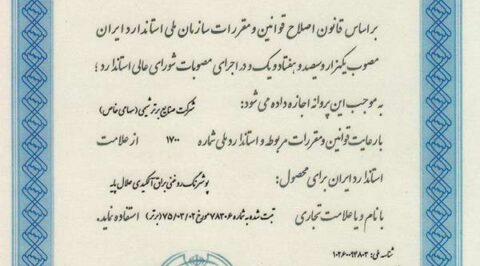 براساس قانون اصلاح قوانین و مقررات سازمان ملی استاندارد ایران
مصوب یکهزار و سیصد و هفتاد و یک و در اجرای مصوبات شورای عالی استاندارد ؛
به موجب این پروانه اجازه داده می شود: شرکت صنایع برتر شیمی (سهامی خاص)
با رعایت قوانین و مقررات مربوطه و استاندارد ملی شماره ۱۷۰۰ از علامت
استاندارد ایران برای محصول: پوشرنگ روغنی براق آلکیدی حلال پایه
با نام و یا علامت تجاری ثبت شده به شماره ۷۸۳۰۶ مورخ ۷۵/۰۲/۰۲ (برتر) استفاده نماید.
شناسه ملی: ۱۰۲۶۰۰۹۴۸۰۲